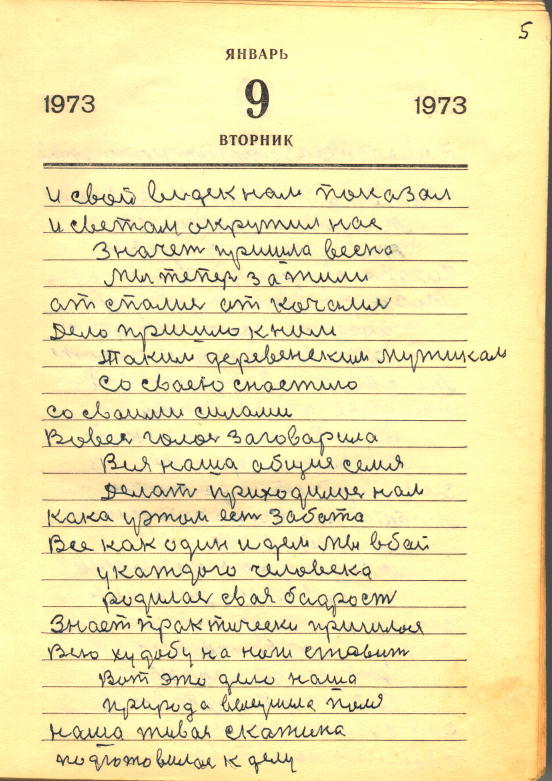 5
ЯНВАРЬ
1973 9 1973
ВТОРНИК
и свой видек нам показал
и светам окружил нас
Значет пришла весна
мы тепер зажили
ат спалис от качалис
Дело пришло к ним
таким деревенским мужикам
со своею снастию
со своими силами
Вовесь голос заговарила
Вся наша общия семя
Делат приходилос нам
кака уэтом ест Забота
Все как один идем мы вбой
укаждого человека
родилас свая бадрост
Знает практически пришлося
Всю худобу на ноги ставит
Вот это дело наша
природа полё
наша живая скатина
подготовилас к делу